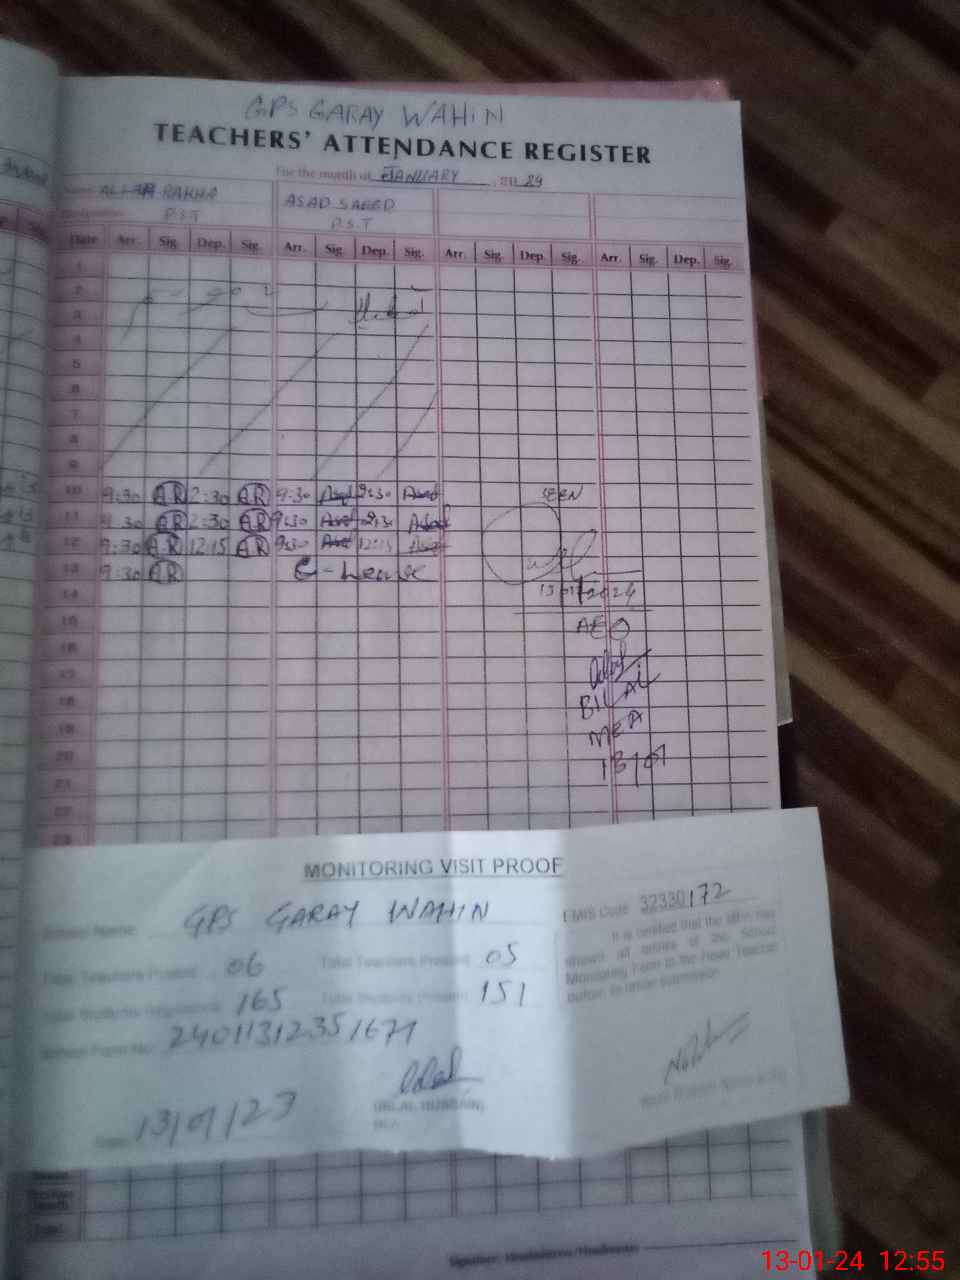 GPS GARAY WAHIN
TEACHERS' ATTENDANCE REGISTER
For the month of JANUARY 20 24
Name ALLAH RAKHA ASAD SAEED
Designation P.S.T P.S.T
Date Arr. Sig. Dep. Sig. Arr. Sig. Dep. Sig. Arr. Sig. Dep. Sig. Arr. Sig. Dep. Sig.
1
2
3
4
5
6
7
8
9
10 9:30 AR 2:30 AR 9:30 Asad 2:30 Asad SEEN
11 9:30 AR 2:30 AR 9:30 Asad 2:30 Asad
12 9:30 AR 12:15 AR 9:30 Asad 12:15 Asad
13 9:30 AR C-Leave
14 13/01/2024
15 AEO
16
17
18 BILAL
19 MEA
20 13/01
21
22
23
MONITORING VISIT PROOF
School Name GPS GARAY WAHIN EMIS Code 32330172
Total Teachers Posted 06 Total Teachers Present 05
Total Students Registered 165 Total Students Present 151
School Form No. 24011312351671
It is certified that the MEA has
shown all entries of the School
Monitoring Form to the Head Teacher
before its online submission
(BILAL HUSSAIN)
MEA
Date 13/01/23
Total
Signature: Headmistress/Headmaster
13-01-24 12:55